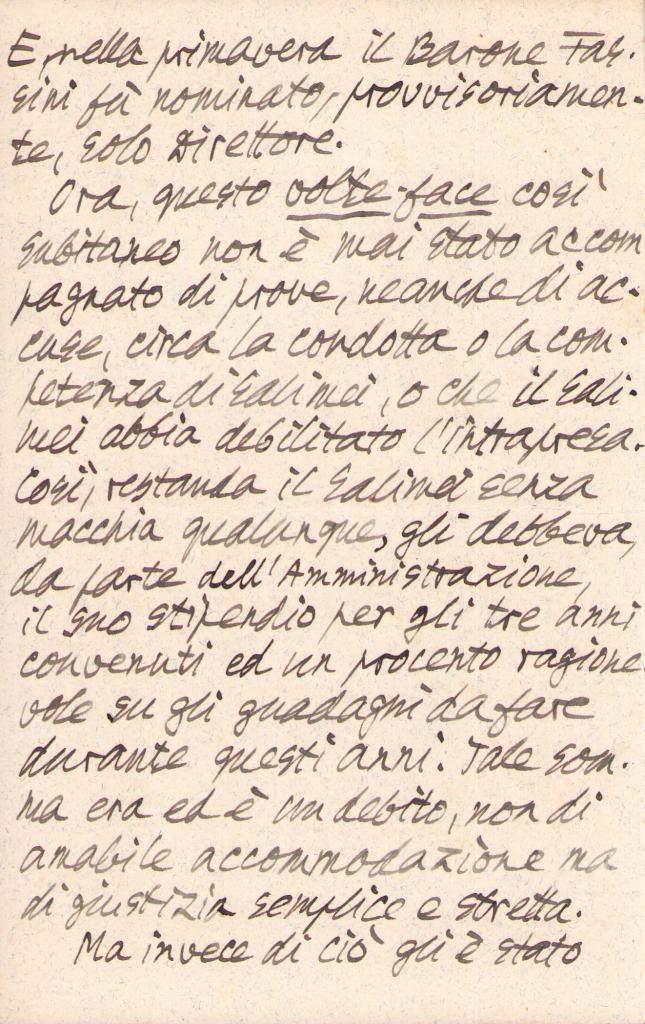 E, nella primavera il Barone Fas-
sini fù nominato, provvisoriamen-
te, solo Direttore.
Ora, questo volte-face così
subitaneo non è mai stato accom
pagnato di prove, neanche di ac-
cuse, circa la condotta o la com-
petenza di Salimei, o che il Sali-
mei abbia debilitato l'intrapresa.
Così, restanda il Salimei senza
macchia qualunque, gli debbeva,
da parte dell'Amministrazione,
il suo stipendio per gli tre anni
convenuti ed un procento ragione
vole su gli guadagni da fare
durante questi anni. Tale som-
ma era ed è un debito, non di
amabile accommodazione ma
di giustizia semplice e stretta.
Ma invece di ciò gli è stato